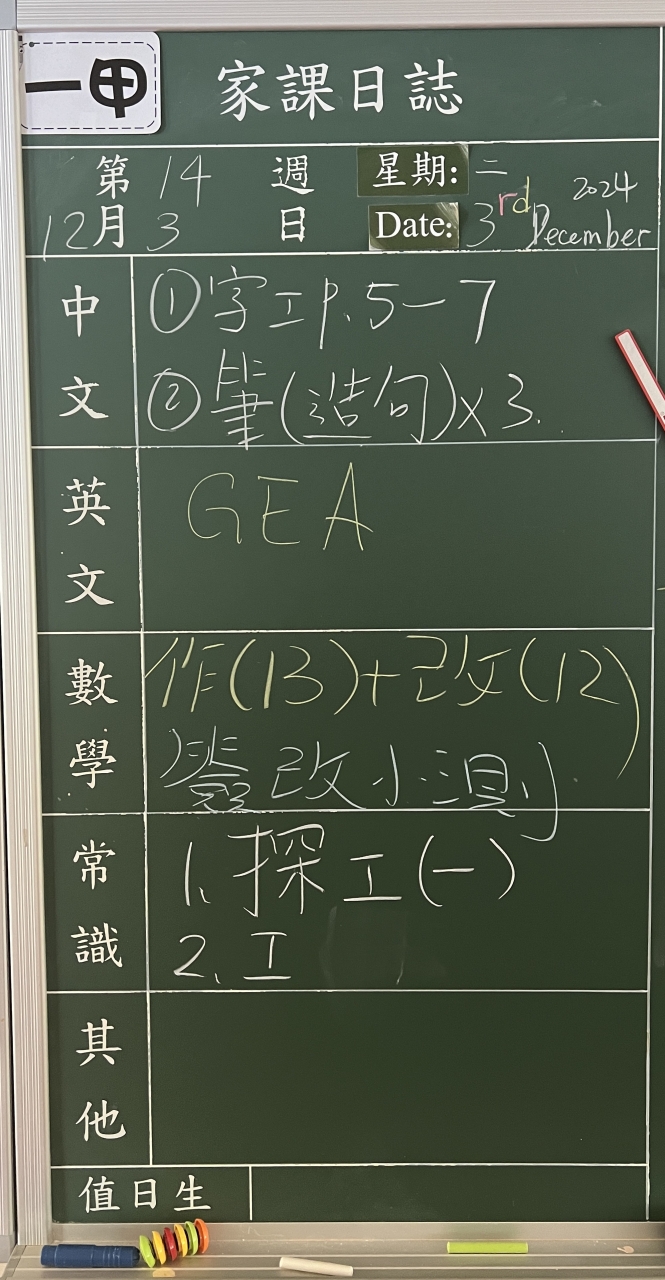 一甲
家課日誌
第 14 週 星期: 二
12月 3 日 Date: 3rd December 2024
中文
①字工P.5－7
②筆(造句)x3.
英文
GEA
數學
作(13)+改(12)
簽改小測
常識
1. 探工(一)
2. 工
其他
值日生